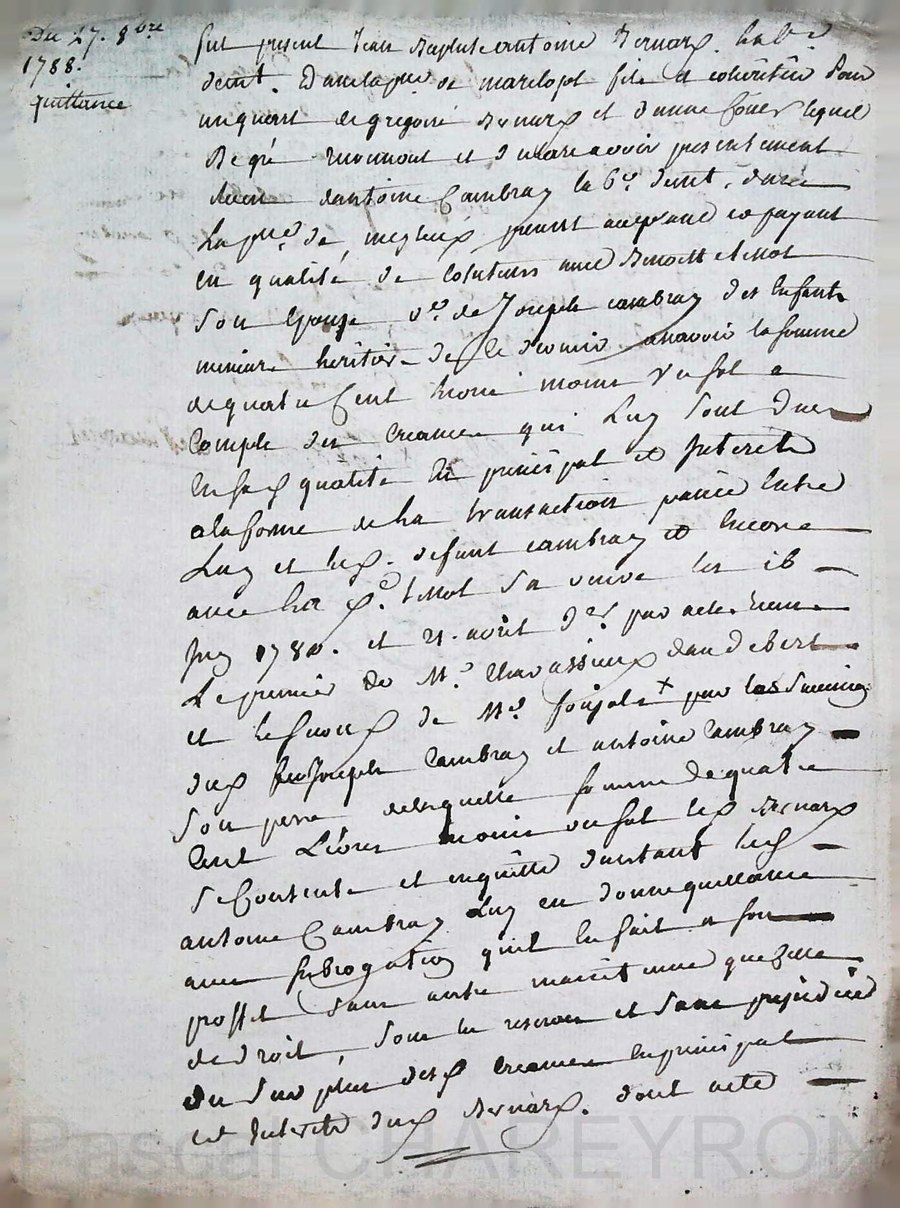 Du 27. 8bre
1788.
quittance
fut present Jean Baptiste antoine Bernard. hab.
demt. dans la psse de marclopt fils et cohéritier pour
un quart de gregoire Bernard et d'anne lequel
De gré reconnait et declare avoir presentement
dantoine Cambray demt. dans
La psse de present acceptant et payant
en qualité de Cotuteur avec Benoitte
Son Epouse ve. de Joseph cambray des Enfants
mineurs heritiers de ce dernier asavoir la somme
de quatre Cent livres moins Un sol a
Compte des creances qui Luy sont dues
en sad qualité En principal et Interets
a la forme de la transaction passée Entre
Luy et led. defunt cambray et Encore
avec lad. sa veuve les 16
1780. et 21. avril dr. par actes recus
Le premier de Me. Chavassieux
et le second de Me. par les
dud feu Joseph Cambray et antoine Cambray
Son pere de laquelle somme de quatre
Cent Livres moins un sol led Bernard
Se Contente et en quitte dautant led
antoine Cambray Luy en donne quittance
avec subrogation quil Luy fait a son
proffit sans autre maintenue que celle
de droit, sous les reserves et sans prejudice
du surplus desd Creances En principal
et Interets dud Bernard. dont acte
Pascal CHAREYRON